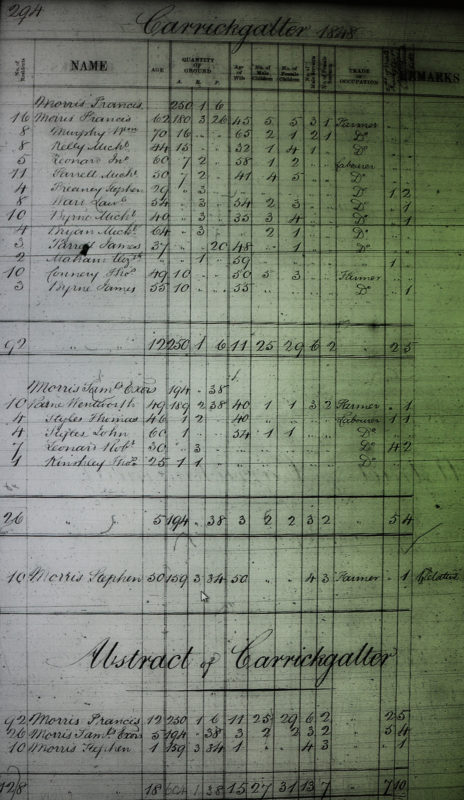 294
Carrickgalter 1848
No. of Residents NAME AGE QUANTITY OF GROUND A. R. P. Age of Wife No. of Male Children No. of Female Children TRADE OR OCCUPATION REMARKS
Morris Francis 250 1 6
16 Morris Francis 62 180 3 26 45 5 5 3 1 Farmer
8 Murphy Wm 70 16 .. .. 65 2 1 2 1 Do
8 Kelly Michl 44 15 .. .. 32 1 4 1 Do
5 Leonard Jno 60 7 2 .. 58 1 2 Labourer
11 Farrell Michl 50 7 2 .. 41 4 5 Do
4 Treaney Stephen 29 .. 3 Do 1 2
8 Warr Lawe 54 .. 3 .. 54 2 3 Do .. 1
10 Byrne Michl 40 .. 3 .. 35 3 4 Do .. 1
4 Bryan Michl 64 .. 3 .. 2 1 Do
3 James 37 .. .. 20 48 .. 1 Do
2 Mahan 1 .. 59 .. 1
10 Connery Thos 49 10 .. .. 50 5 3 Farmer
3 Byrne James 55 10 .. .. 55 Do .. 1
92 12 250 1 6 11 25 29 6 2 2 5
Morris Saml Exors 194 .. 38
10 Wentworth 49 189 2 38 40 1 1 3 2 Farmer .. 1
4 Styles Thomas 46 1 2 .. 40 Labourer 1 1
4 John 60 1 .. 54 1 1 Do
7 Leonard Robt 30 .. 3 Do 4 2
1 Kinshley Thos 25 1 1 Do
26 5 194 .. 38 3 2 2 3 2 5 4
10 Morris Stephen 50 159 3 34 50 .. .. 4 3 Farmer .. 1
Abstract of Carrickgalter
92 Morris Francis 12 250 1 6 11 25 29 6 2 2 5
26 Morris Saml Exors 5 194 .. 38 3 2 2 3 2 5 4
10 Morris Stephen 1 159 3 34 1 4 3 .. 1
128 18 604 1 38 15 27 31 13 7 7 10